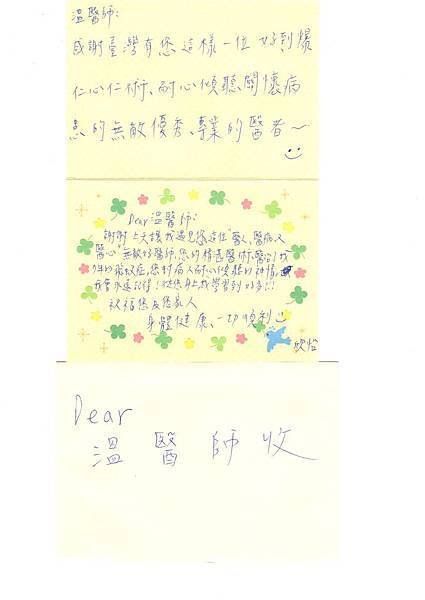 溫醫師:
感謝臺灣有您這樣一位 好到爆
仁心仁術、耐心傾聽、關懷病
患的無敵優秀、專業的醫者~
Dear 溫醫師:
謝謝上天讓我遇見您這位"醫人、醫病、又
醫心"無敵好醫師,您的精湛醫術、醫治了我
年的 症,您對病人耐心傾聽的神情,
我會永遠記得!從您身上我學習到好多!!
祝福您及您家人
身體健康、一切順利
欣怡
Dear
溫醫師收